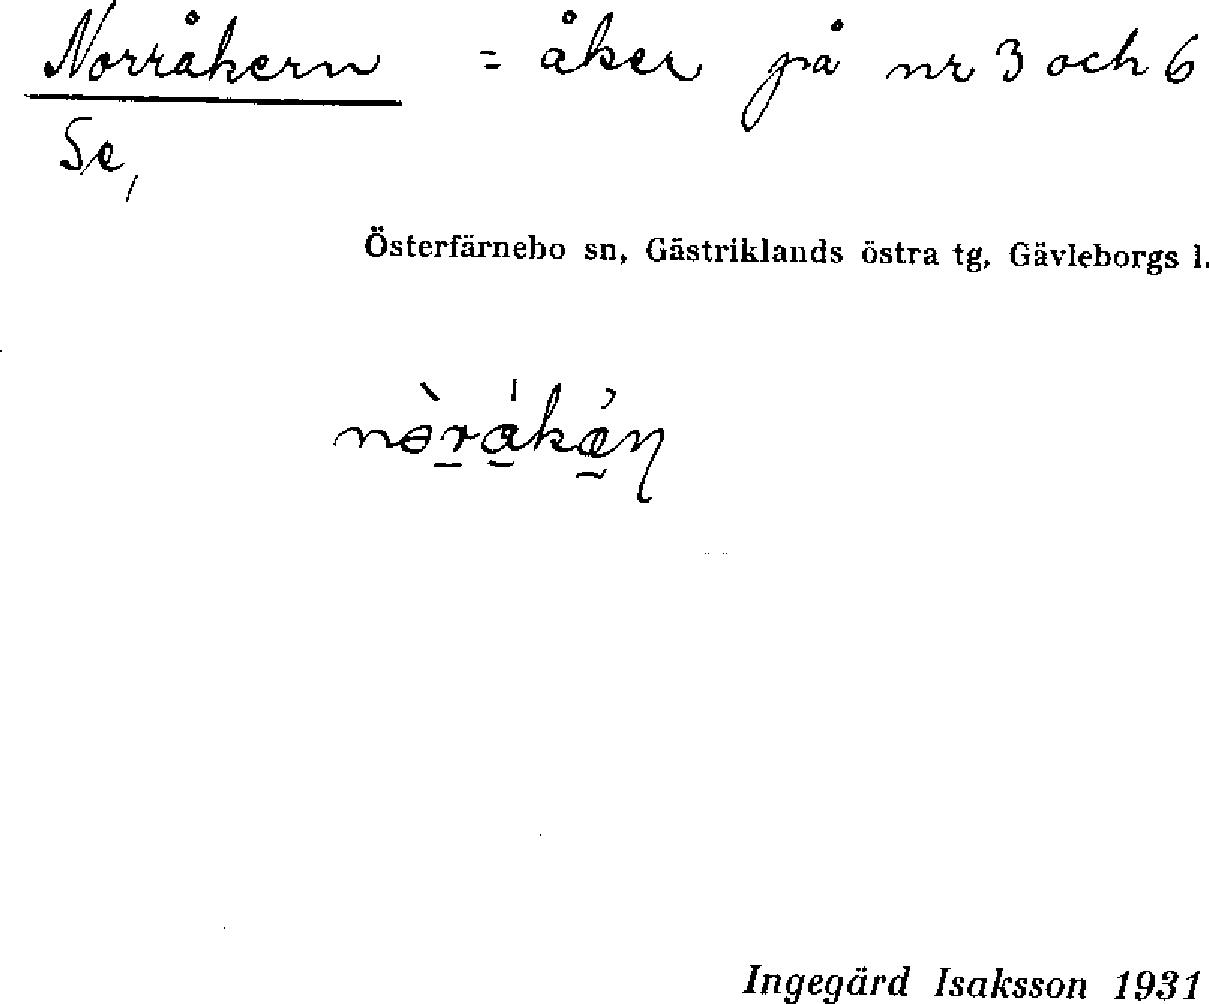 Norråkern = åker på nr 3 och 6
Se,
Österfärnebo sn, Gästriklands östra tg, Gävleborgs l.
Ingegärd Isaksson 1931